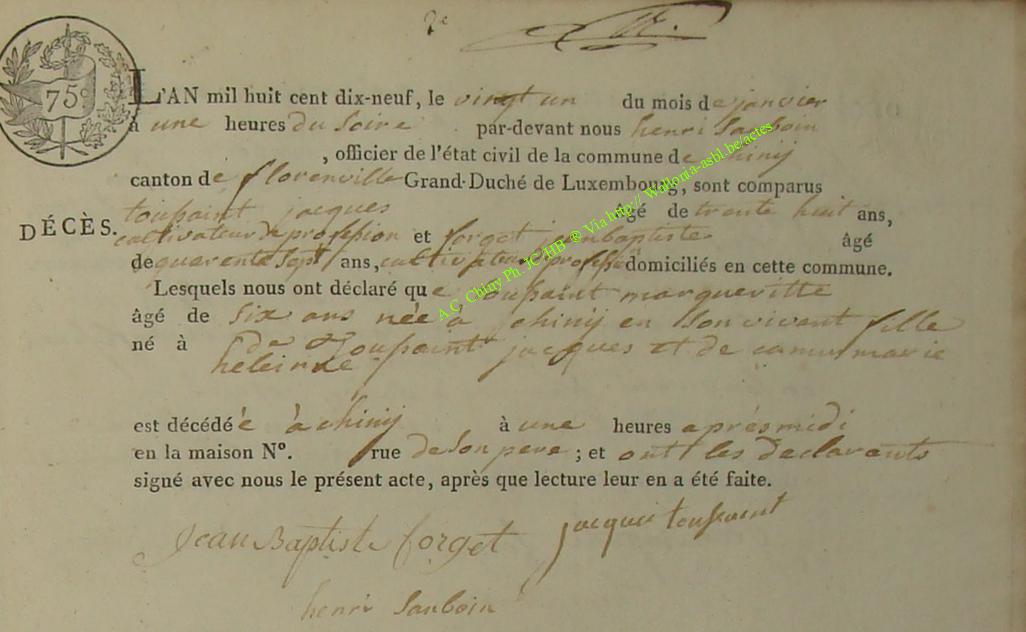 2e
75c
L'AN mil huit cent dix-neuf, le vingt un du mois de janvier
à une heures du soire par-devant nous henri Sauboin
, officier de l'état civil de la commune de chinij
canton de florenville Grand-Duché de Luxembourg, sont comparus
toussaint jacques âgé de trente huit ans,
DÉCÈS.
cultivateur de profession et forget jeanbaptiste âgé
de quarente sept ans, cultivateur profession domiciliés en cette commune.
Lesquels nous ont déclaré que toussaint margueritte
âgé de six ans née à chinij en son vivant fille
né à de toussaint jacques et de camus marie
heleine
est décédée à chinij à une heures aprésmidi
en la maison N°. rue de son pere ; et ont les declarants
signé avec nous le présent acte, après que lecture leur en a été faite.
Jean Baptiste forget jacques toussaint
henri Sauboin
A.C. Chiny Ph. JC-HB ® Via http:// Wallonia-asbl.be/actes